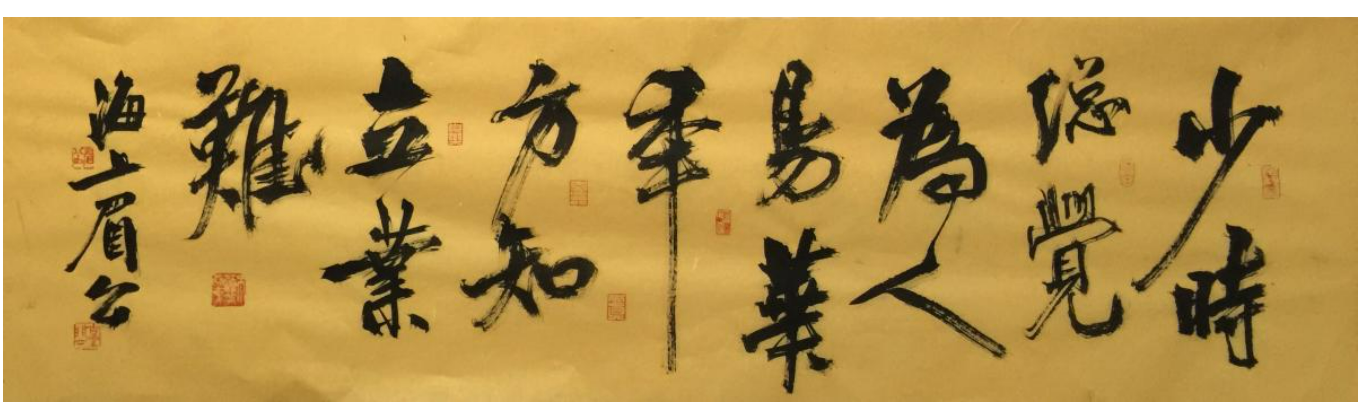 少時
總覺
為人
易華
年
方知
立業
難
海上眉公